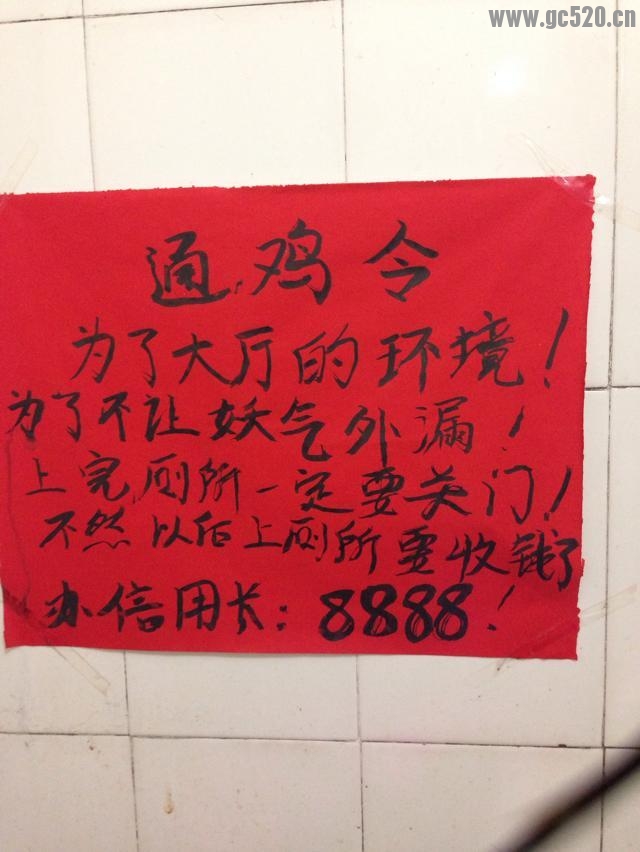 www.gc520.cn
通鸡令
为了大厅的环境!
为了不让妖气外漏!
上完厕所一定要关门!
不然以后上厕所要收钱了
办信用长:8888!